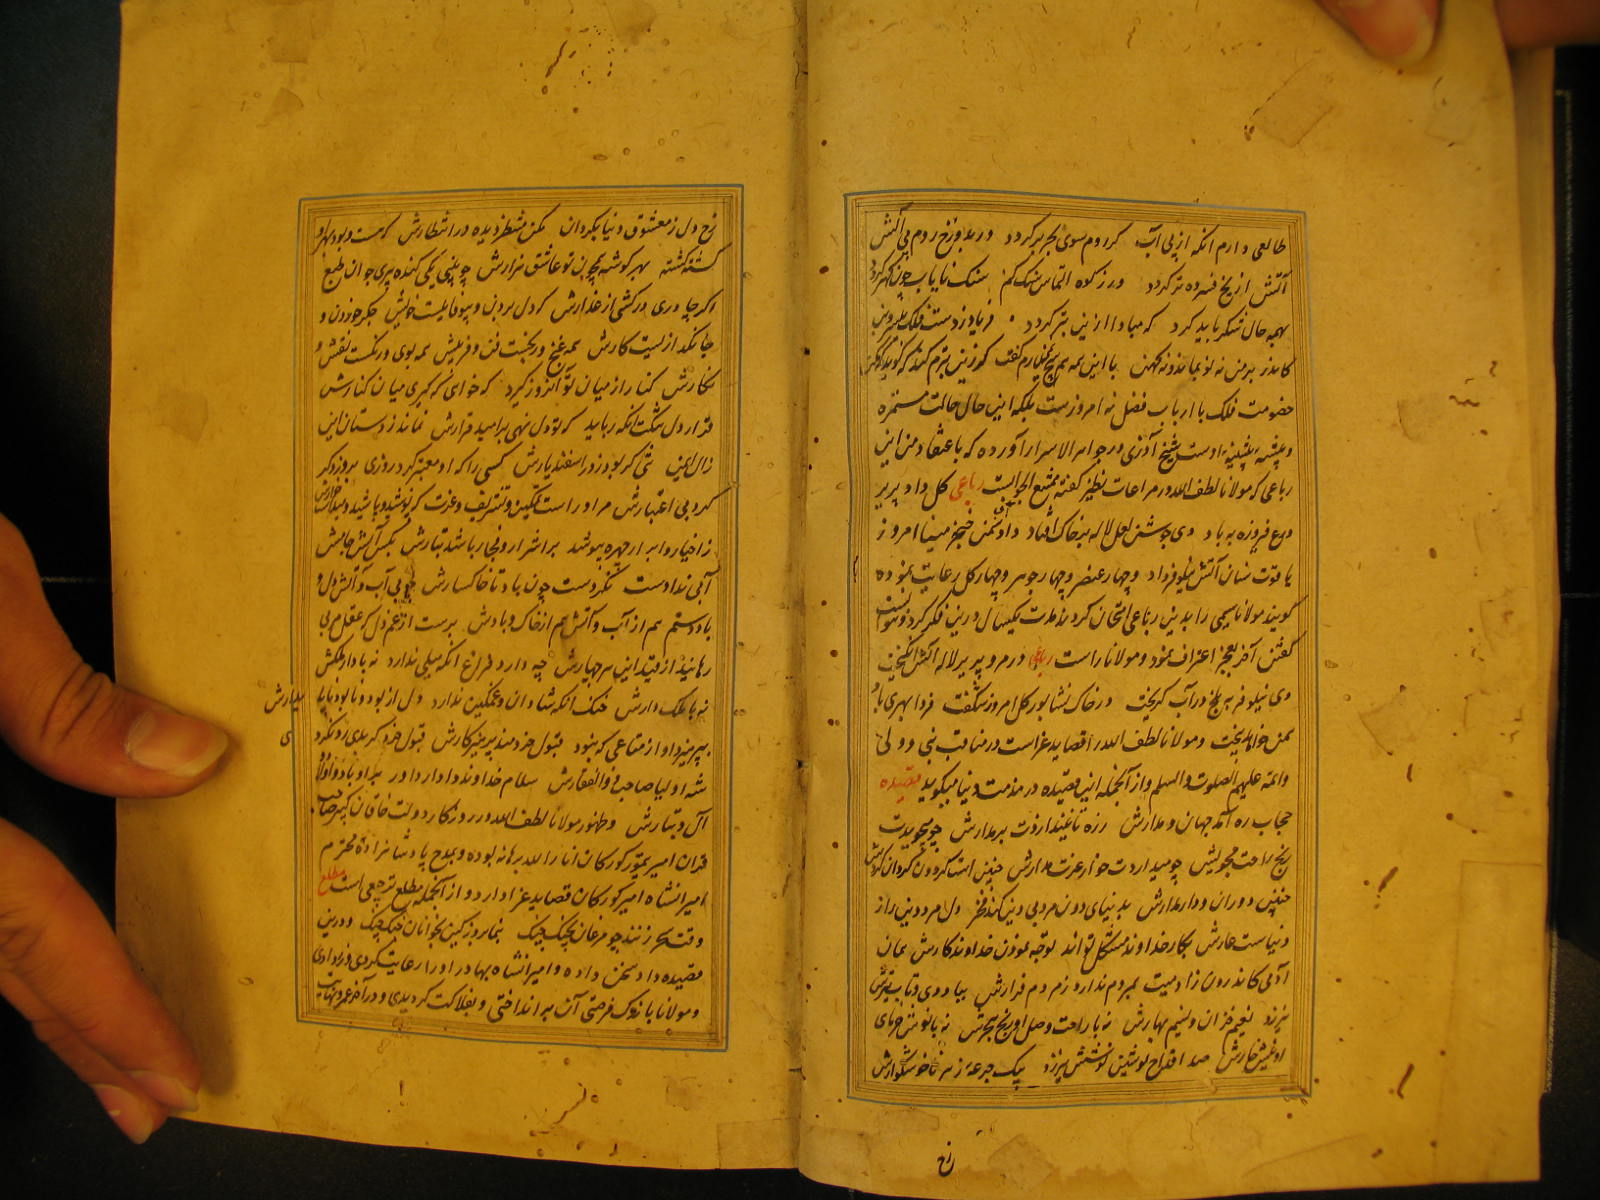 طالعی دارم آنکه از پی آب گر روم سوی بحر بر گردد ور بدوزخ روم پی آتش
آتش از یخ فسرده تر گردد ور ز کوه التماس سنک کنم سنک نایاب چون گهر گردد
بهمه حال شکر باید کرد که مبادا ازین بتر گردد فریاد ز دست فلک
کاندر بر من نه نو بماند و نه کهن با این همه هم هیچ نمی یارم گفت گر زین بترم کند که گوید که مکن
خصومت فلک با ارباب فضل نه امروزست بلکه این حال حالت مستمره
و پیشه اوست شیخ آذری در جواهر الاسرار آورده که باعتقاد من این
رباعی که مولانا لطف الله در مراعات نظیر گفته ممتنع الجوابست رباعی گل داد پریر
درع فیروزه بباد دی جوشن لعل لاله بر خاک افتاد داد سمن خنجر مینا امروز
یاقوت سنان آتش نیلوفر داد و چهار عنصر و چهار جوهر و چهار گل رعایت نموده
گویند مولانا نسیمی را بدین رباعی امتحان کردند مدت یکسال درین فکر کرد و نتوانست
گفتن آخر بعجز اعتراف نمود و مولانا راست رباعی در مرو پریر لاله آتش انگیخت
دی نیلوفر ببلخ در آب گریخت در خاک نشابور گل امروز شکفت فردا بهری باد
سمن خواهد بیخت و مولانا لطف الله را قصاید غراست در مناقب نبی و ولی
و ائمه علیهم الصلوت و السلم و از آنجمله این قصیده در مذمت دنیا میگوید قصیده
حجاب ره آمد جهان و مدارش ز ره تا نیندازدت بر مدارش چو میجویدت
رنج راحت مجویش چو میداردت خوار عزت مدارش چنین است گردون گردان
چنین دوران و دار مدارش بدنیای دون مرد بی دین کند فخر دل مرد دین را ز
دنیاست عارش بکار خداوند مشکل تواند توجه نمودن خداوند کارش بمان
آدمی کاندرون زادمیت بمردم ندارد ز مردم
نیرزد نعیم خزان و نسیم بهارش نه با راحت وصل او رنج هجرش نه با نوش خرمای
او نیش خارش صد اقداح نوشین نوشش نیرزد بیک جرعه زهر ناخوشگوارش
رخ
رخ دل ز معشوق دنیا بگردان مکن منتظر دیده در انتظارش که هست و بود
گشته کشته بهر گوشه همچون تو عاشق هزارش چو بینی یکی گنده پیر جوان طبع
اگر چادری در کشی از عذارش که دل بردن و بیوفاییست خویش جگر خوردن و
جانگدازیست کارش همه غنج و رنجست فن و فریبش همه بوی و رنگست نقش و
نگارش کنار از میان تو آنروز گیرد که خواهی که گیری میان کنارش
قرار دل شکسته آنکه رباید که تو دل نهی بر امید قرارش نماند ز دستان این
زال ایمن تنی گر بود زور اسفندیارش کسی را که او معتبر کرد روزی بروز دگر
کرد بی اعتبارش مر او راست تمکین و تشریف و عزت که
ز اختیار و ابرار چهره بپوشد بر اشرار و فجار باشد تبارش مکن آتش
آبی ندادست نکردست چون باد تا خاکسارش چو بی آب و آتش دل و
باد دستم هم از آب و آتش هم از خاک و بادش پرست از غم دل که عقل مربی
رهانید از قید این هر چهارش چه دارد فراغ آنکه میلی ندارد نه با دار ملکش
نه با ملک دارش خنک آنکه شادان و غمگین ندارد دل از بود و نابود
بپرهیزد او از متاعی که نبود قبول خردمند پرهیزکارش قبول خرد گر بدی رد نکردی
شه اولیا صاحب ذوالفقارش سلام خداوند دادار داور بر او باد و اولاد
آل و تبارش و ظهور مولانا لطف الله در روزگار دولت خاقان کبیر صاحب
قران امیر تیمور گورکان انار الله برهانه بوده و بمدح پادشاهزاده محترم
امیرانشاه امیر گورکان قصاید غرا دارد و از آنجمله مطلع ترجیعی است مطلع
وقت سحر زنند چو مرغان بچنگ چنگ بنما بروز کین
قصیده داد سخن داده و امیرانشاه بهادر او را رعایت کردی و زر دادی
و مولانا باندک فرصتی آن بر انداختی و بفلاکت گردیدی و در آخر عمر